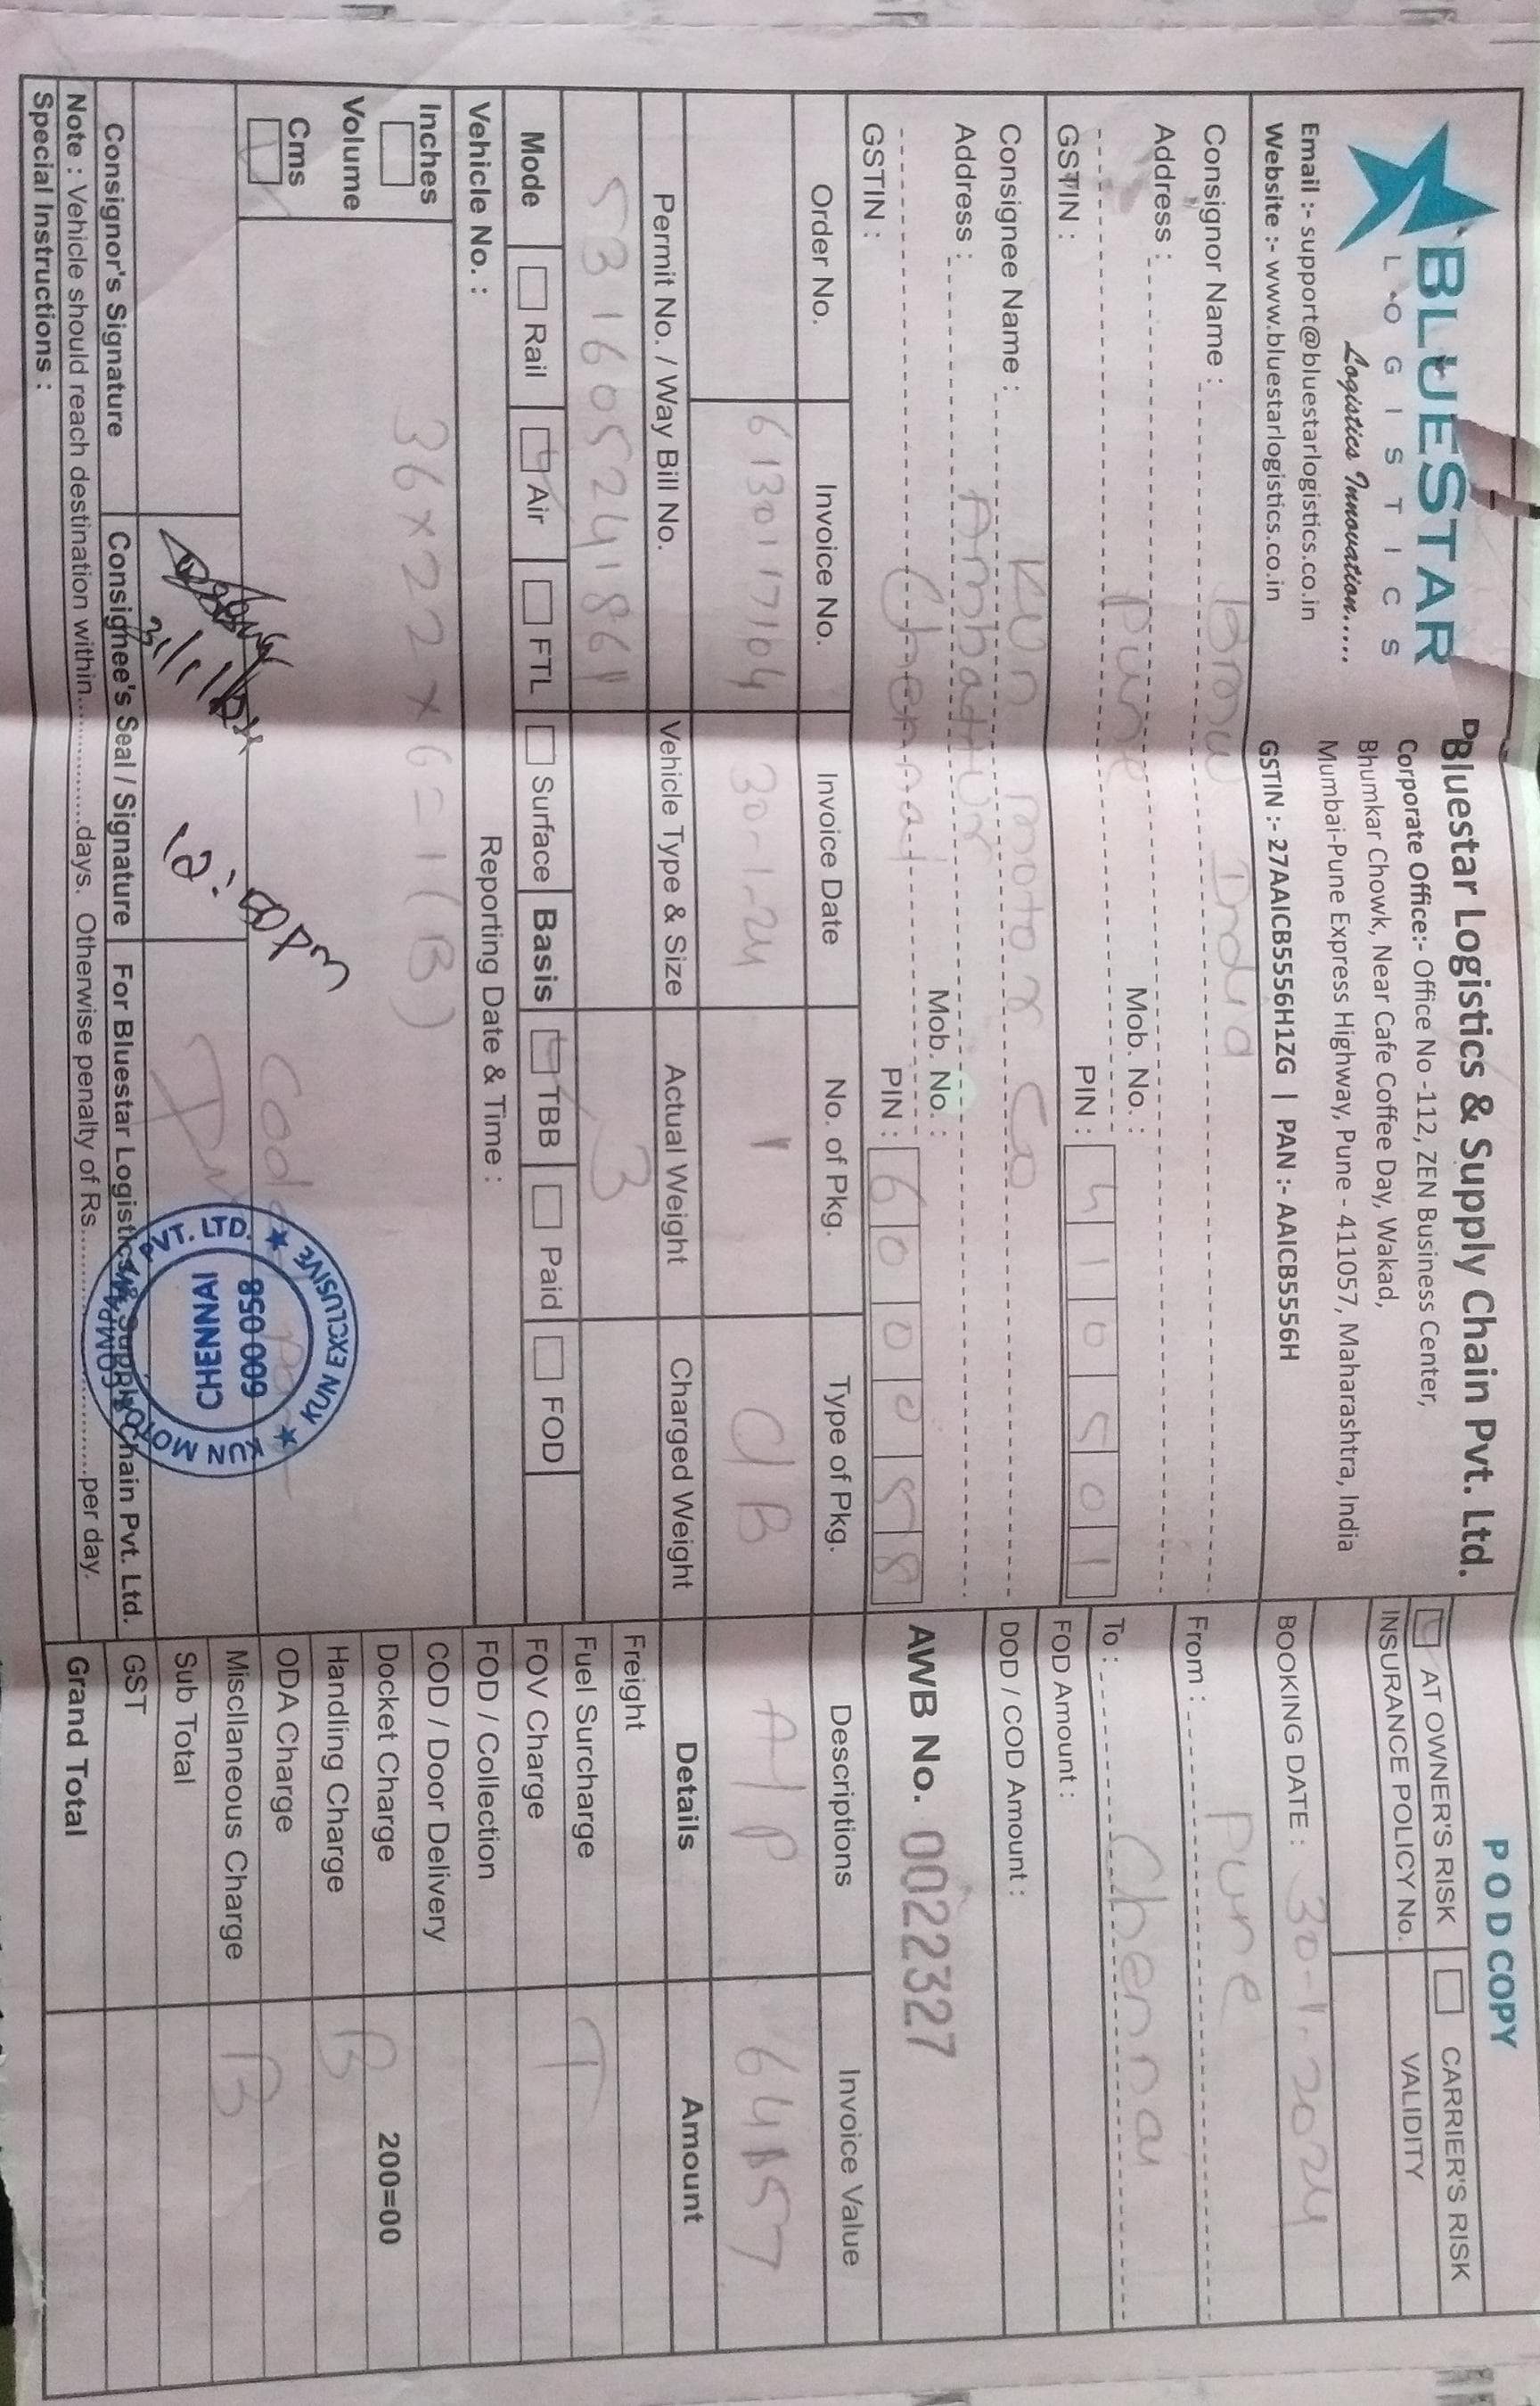 BLUESTAR
LOGISTICS
Logistics Innovation.....
Email :- support@bluestarlogistics.co.in
Website :- www.bluestarlogistics.co.in
Bluestar Logistics & Supply Chain Pvt. Ltd.
Corporate Office:- Office No -112, ZEN Business Center,
Bhumkar Chowk, Near Cafe Coffee Day, Wakad,
Mumbai-Pune Express Highway, Pune - 411057, Maharashtra, India
GSTIN :- 27AAICB5556H1ZG | PAN :- AAICB5556H
POD COPY
AT OWNER'S RISK CARRIER'S RISK
INSURANCE POLICY No. VALIDITY
BOOKING DATE : 30-1-2024
From : Pune
To : Chennai
FOD Amount :
DOD / COD Amount :
AWB No. 0022327
Consignor Name : Bmw India
Address :
Pune
Mob. No. :
PIN : 410501
GSTIN :
Consignee Name : KUn motor Co
Address : Ambattur
Chennai
Mob. No. :
PIN : 600058
GSTIN :
Order No. Invoice No. Invoice Date No. of Pkg. Type of Pkg. Descriptions Invoice Value
6130117104 30-1-24 1 C/B A/P
Permit No. / Way Bill No. Vehicle Type & Size Actual Weight Charged Weight
531605241861 3
Mode Rail Air FTL Surface Basis TBB Paid FOD
Vehicle No. : Reporting Date & Time :
Inches
Volume
Cms
36×22×6=1(B)
Details Amount
Freight
Fuel Surcharge T
FOV Charge
FOD / Collection
COD / Door Delivery
Docket Charge 200=00
Handling Charge B
ODA Charge
Miscllaneous Charge B
Sub Total
GST
Grand Total
31/1/
12:50pm
KUN EXCLUSIVE ★ KUN MOTOR COMPANY PVT. LTD. ★
CHENNAI
600 058
Consignor's Signature
Consignee's Seal / Signature
For Bluestar Logistics & Supply Chain Pvt. Ltd.
Note : Vehicle should reach destination within................days. Otherwise penalty of Rs..............................per day.
Special Instructions :